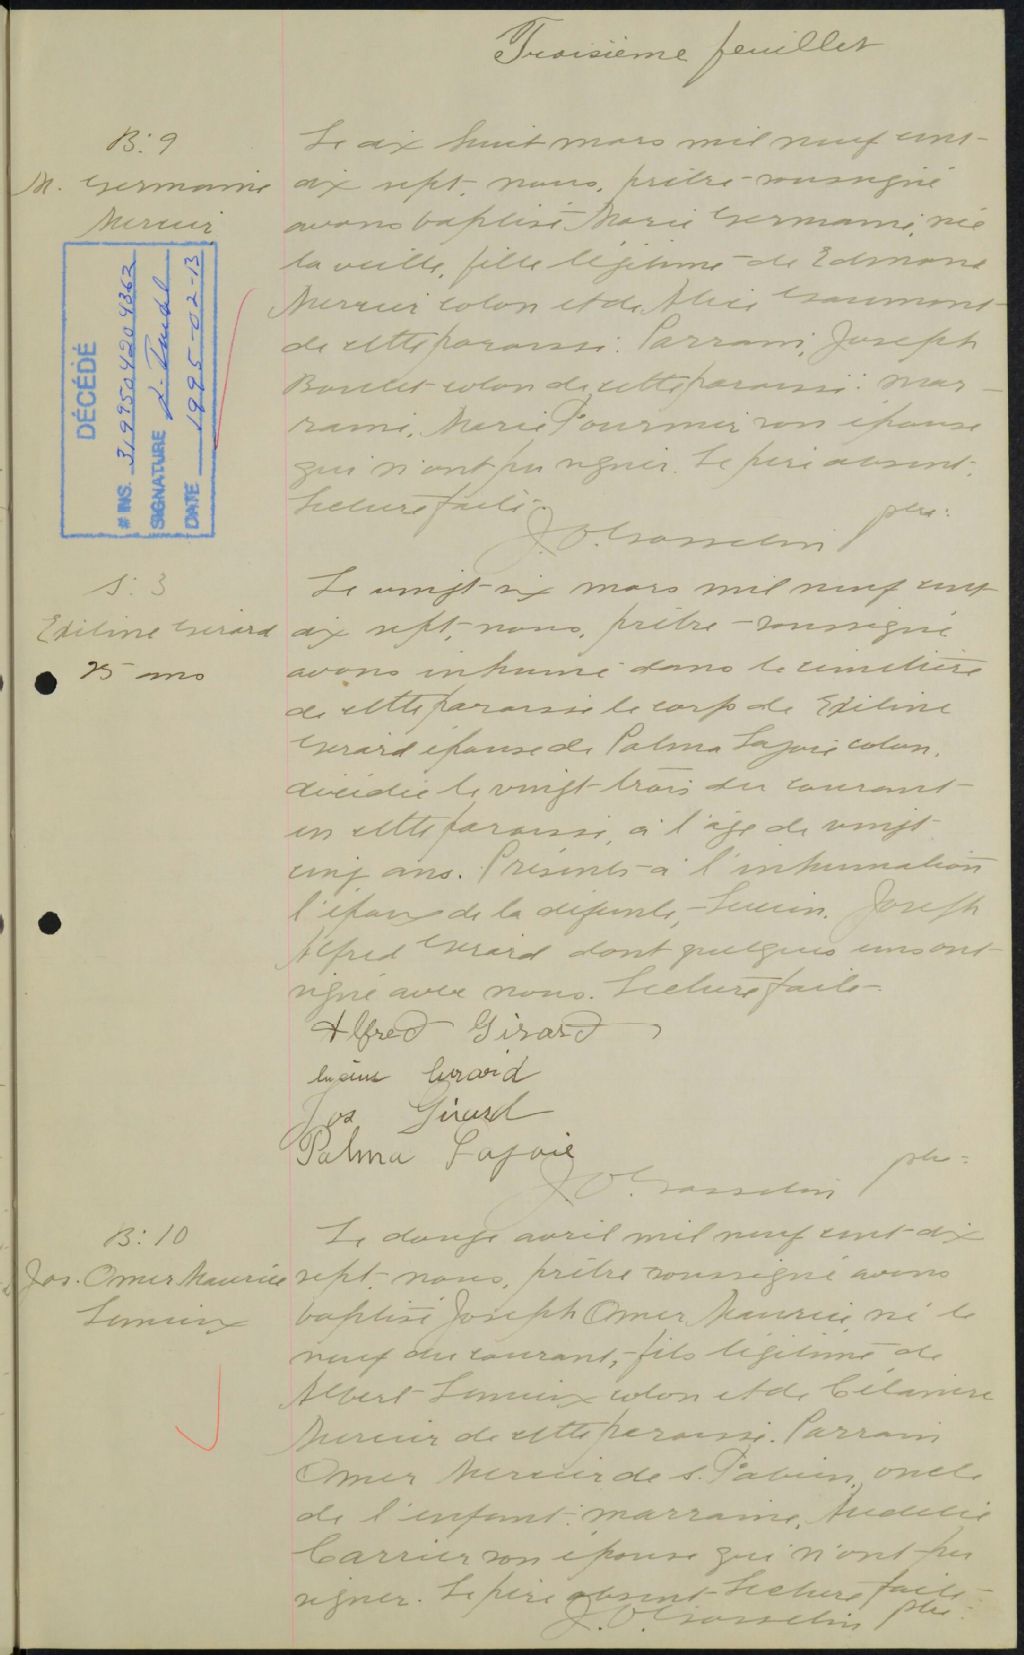 Troisième feuillet
B: 9
M. Germaine
Mercier
DÉCÉDÉ
# INS. 3199504209362
SIGNATURE
DATE 1995-02-13
Le dix huit mars mil neuf cent
dix sept, nous, prêtre soussigné
avons baptisé Marie Germaine, née
la veille, fille légitime de Edmond
Mercier colon et de Alice Gaumont
de cette paroisse. Parrain, Joseph
Boulet colon de cette paroisse: mar-
raine, Marie Fournier son épouse
qui n'ont pu signer. Le père absent.
Lecture faite.
J. O. Gosselin ptre:
S: 3
Exiline Girard
25 ans
Le vingt-six mars mil neuf cent
dix sept, nous, prêtre soussigné
avons inhumé dans le cimetière
de cette paroisse le corps de Exiline
Girard épouse de Palma Lajoie colon,
décédée le vingt trois du courant
en cette paroisse, à l'âge de vingt
cinq ans. Présents à l'inhumation
l'époux de la défunte, Lucien, Joseph
Alfred Girard dont quelques uns ont
signé avec nous. Lecture faite.
Alfred Girard
Lucien Girard
Jos Girard
Palma Lajoie
J. O. Gosselin ptre:
B: 10
Jos. Omer Maurice
Lemieux
Le douze avril mil neuf cent dix
sept, nous, prêtre soussigné avons
baptisé Joseph Omer Maurice, né le
neuf du courant, fils légitime de
Albert Lemieux colon et de Célanire
Mercier de cette paroisse. Parrain
Omer Mercier de S. Fabien, oncle
de l'enfant: marraine,
Carrier son épouse qui n'ont pu
signer. Le père absent Lecture faite.
J. O. Gosselin ptre: